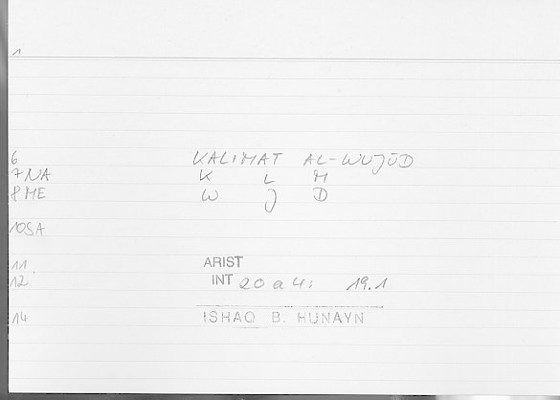 1
6 KALIMAT AL-WUJŪD
7NA K L M
8ME W J D
10SA
11 ARIST
12 INT 20 a 4: 19.1
14 ISHAQ B. HUNAYN